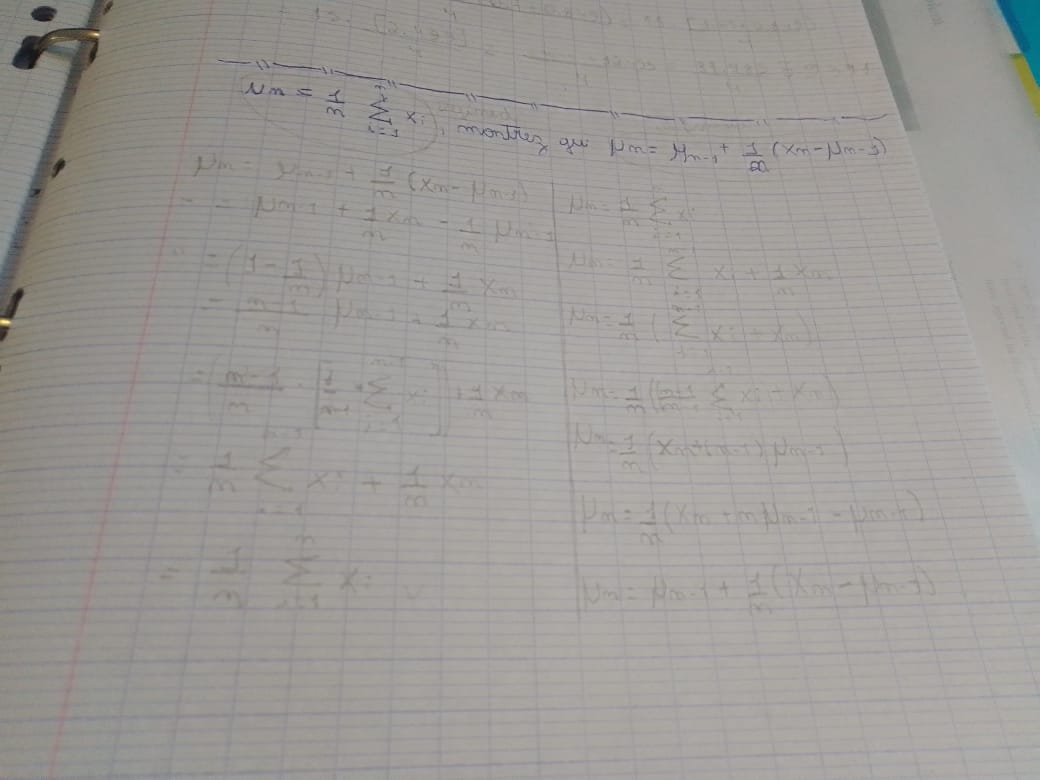 μn = 1/n Σ_{i=1}^{n} xi, montrez que μn = μn-1 + 1/n (xn - μn-1)
μn = μn-1 + 1/n (xn - μn-1)
= μn-1 + 1/n xn - 1/n μn-1
= (1 - 1/n) μn-1 + 1/n xn
= n-1/n μn-1 + 1/n xn
= (n-1/n · [1/n-1 Σ_{i=1}^{n-1} xi] + 1/n xn
= 1/n Σ_{i=1}^{n-1} xi + 1/n xn
= 1/n Σ_{i=1}^{n} xi
μn = 1/n Σ_{i=1}^{n} xi
μn = 1/n Σ_{i=1}^{n-1} xi + 1/n xn
μn = 1/n (Σ_{i=1}^{n-1} xi + xn)
μn = 1/n (n-1/n-1 Σ_{i=1}^{n-1} xi + xn)
μn = 1/n (xn + (n-1) μn-1)
μn = 1/n (xn + n μn-1 - μn-1)
μn = μn-1 + 1/n (xn - μn-1)